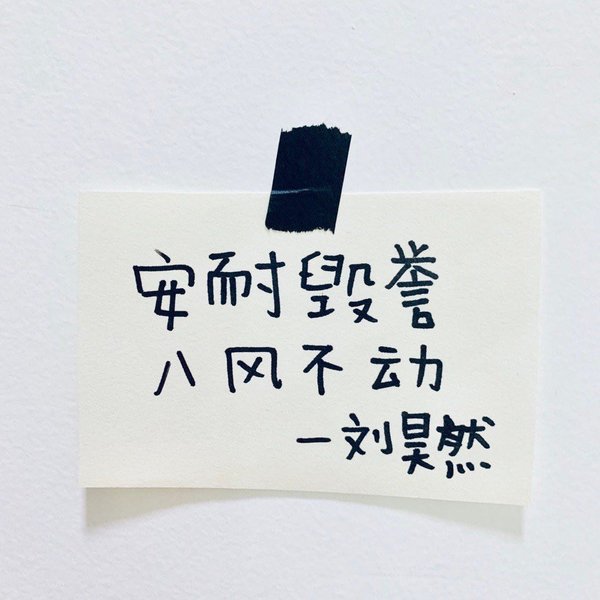 安耐毁誉
八风不动
—刘昊然